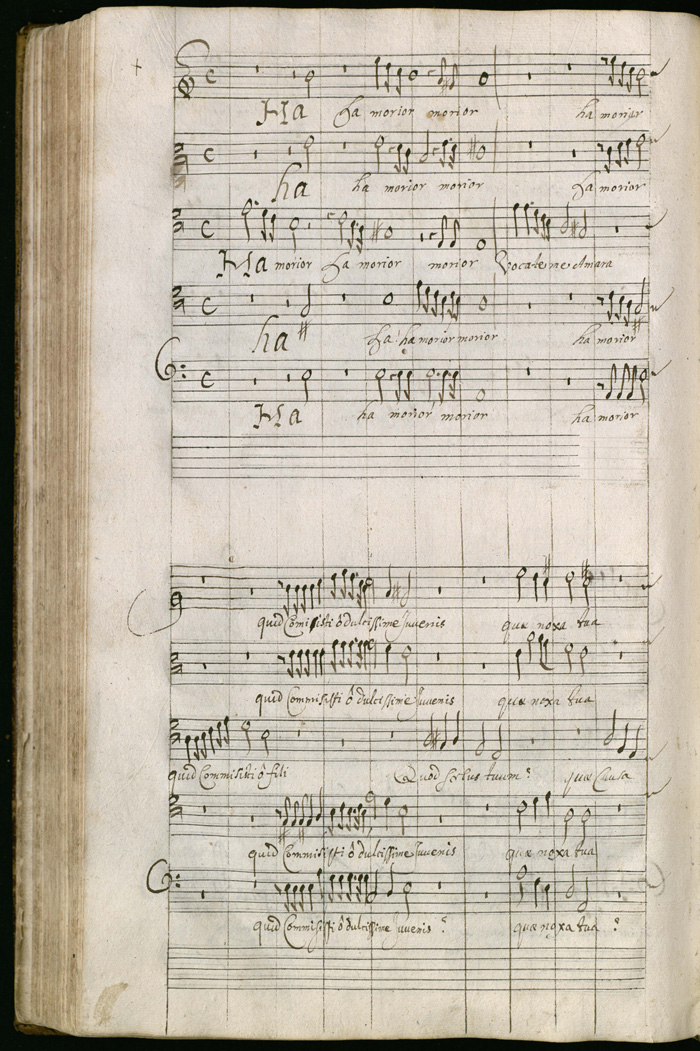 Ha ha morior morior ha morior
ha ha morior morior ha morior
Ha morior ha morior morior Vocate me Amara
ha ha ha morior morior ha morior
Ha ha morior morior ha morior
quid Comisisti ô dulcissime Juvenis quæ noxa tua
quid Commisisti ô dulcissime Juvenis quæ noxa tua
quid Commisisti ô fili Quod scelus tuum? quæ Causa
quid Commisisti ô dulcissime Juvenis quæ noxa tua
quid Commisisti ô dulcissime Juvenis? quæ noxa tua?